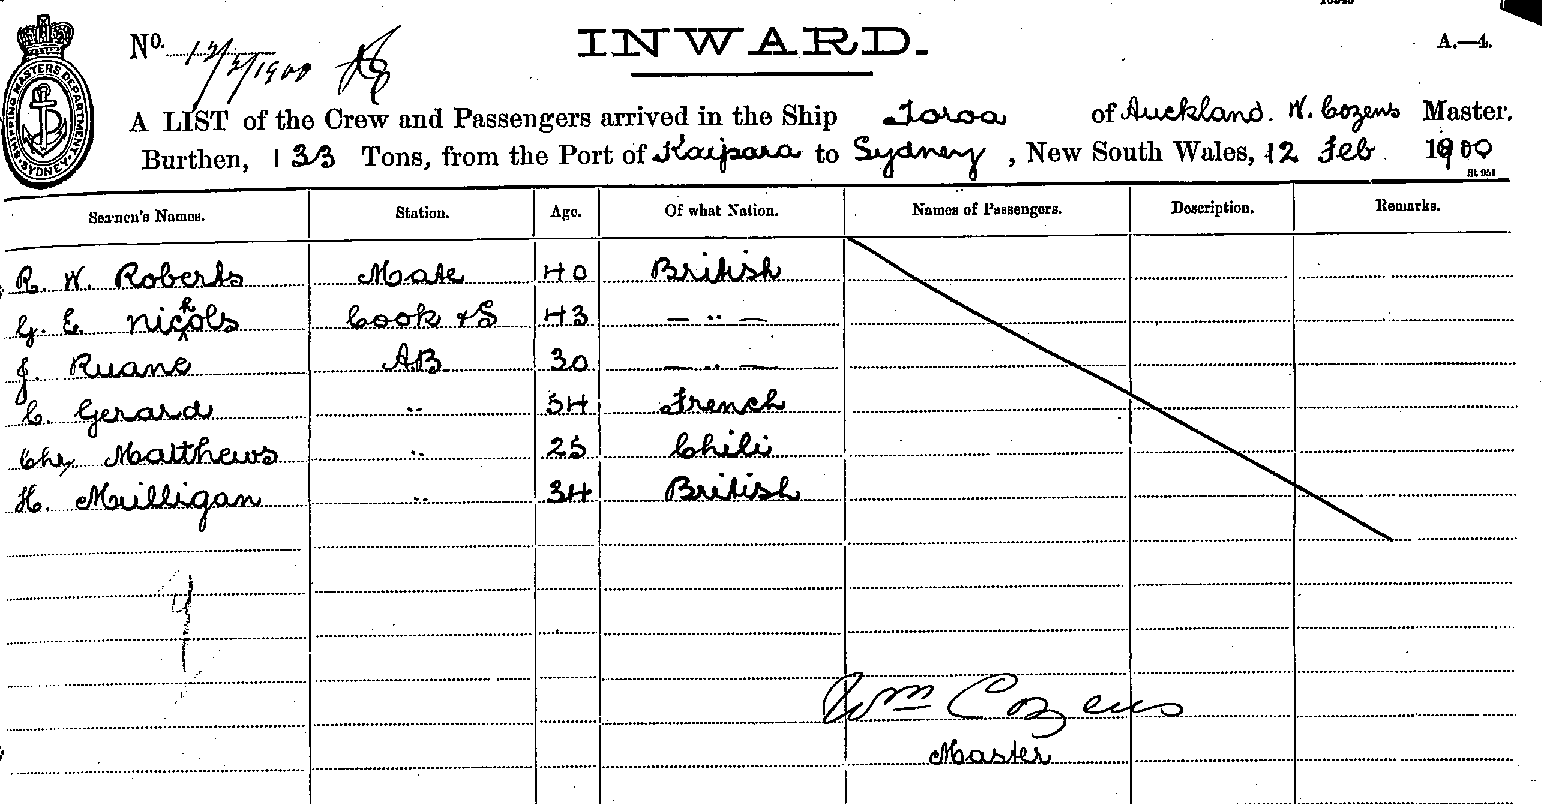 INWARD.
A.—4.
No. 12/2/1900
SHIPPING MASTERS DEPARTMENT SYDNEY
A LIST of the Crew and Passengers arrived in the Ship Toroa of Auckland. W. Cozens Master,
Burthen, 133 Tons, from the Port of Kaipara to Sydney, New South Wales, 12 Feb. 1900
Seamen's Names. Station. Age. Of what Nation. Names of Passengers. Description. Remarks.
R. W. Roberts Mate 40 British
G. E. Nichols Cook & S 43 — " —
J. Ruane AB 30 — " —
C. Gerard " 34 French
Chs Matthews " 25 Chili
H. Milligan " 34 British
Wm Cozens
Master